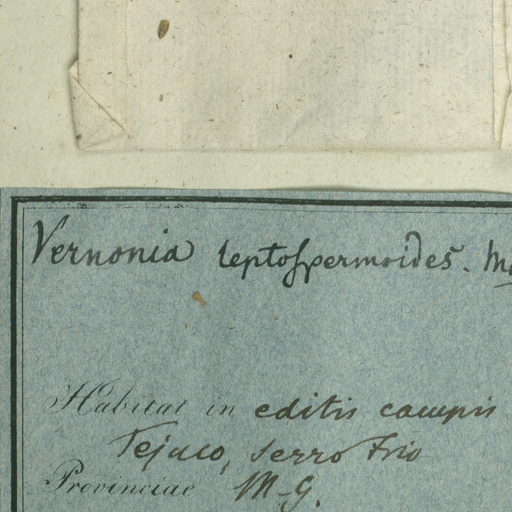 Vernonia leptospermoides. M
Habitat in editis campis
Tejuco, Serro Frio
Provinciae M-G.